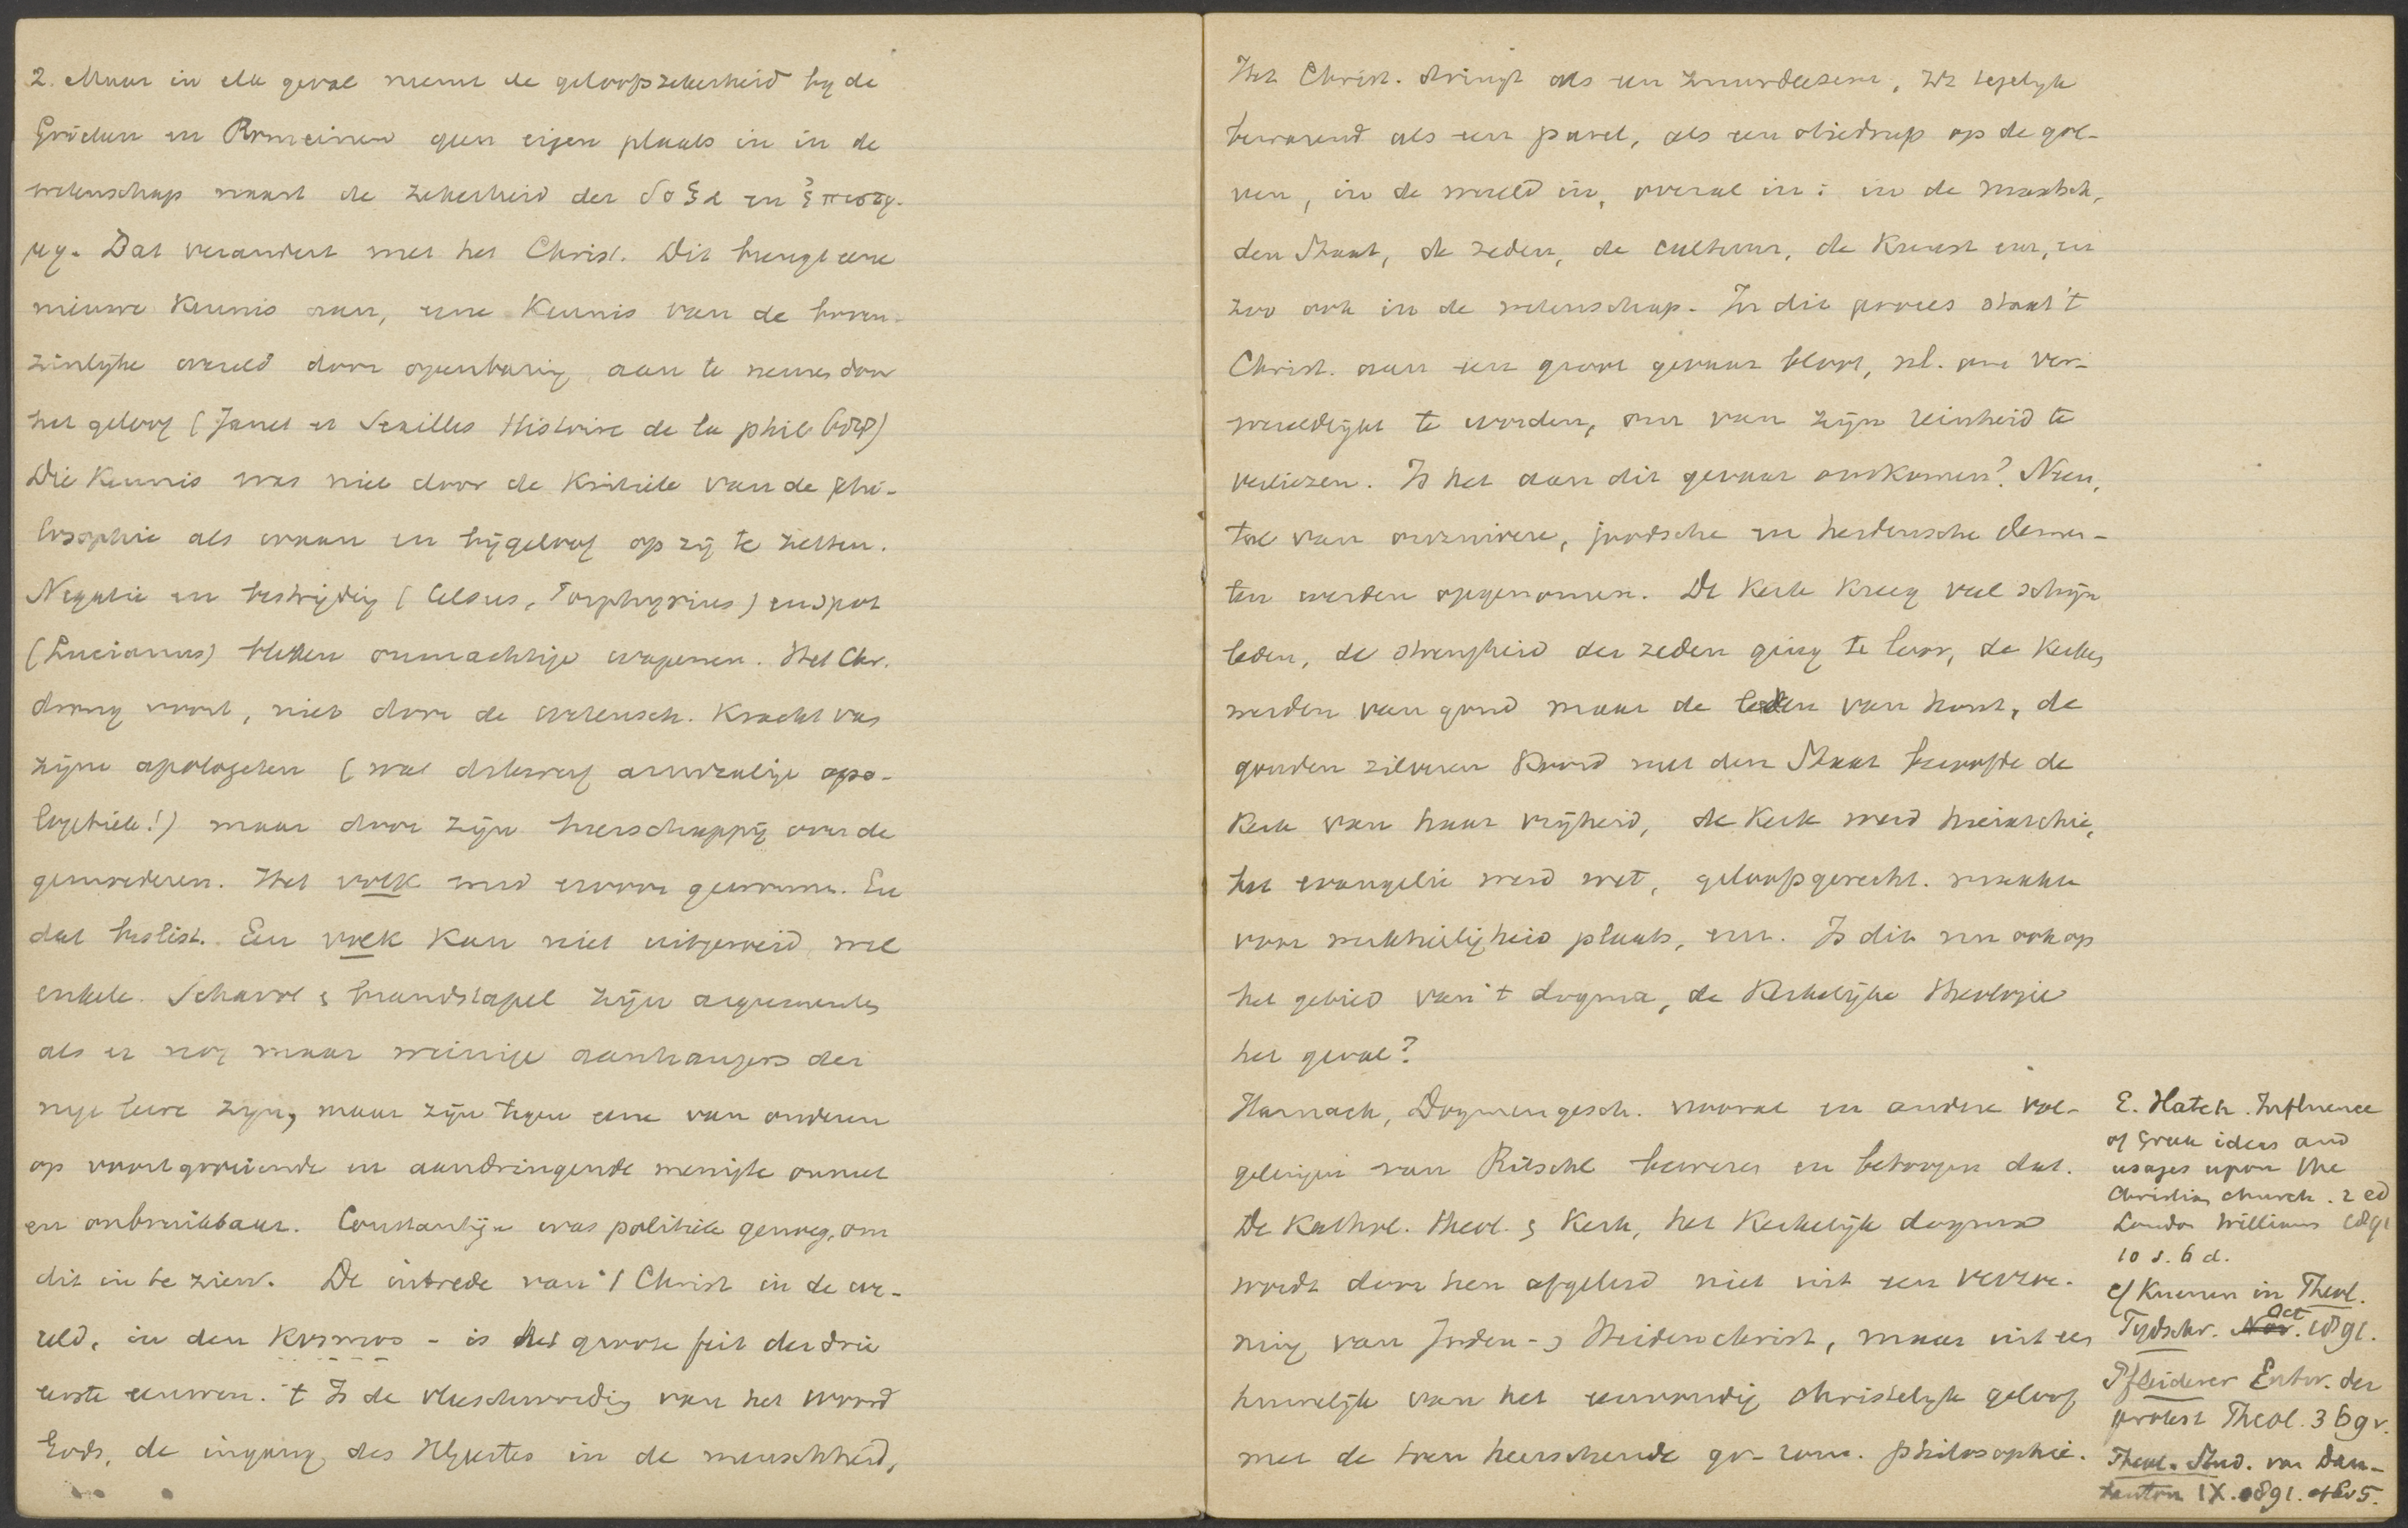 2. Maar in elk geval neemt de geloofszekerheid by de
Grieken en Romeinen geen eigen plaats in in de
wetenschap naast de zekerheid der δοξα en ἐπιστη-
μη. Dat verandert met het Christ. Dit brengt eene
nieuwe Kennis aan, eene Kennis van de boven-
zinlyke wereld door openbaring, aan te nemen door
het geloof (Janet et Séailles Histoire de la phil.
Die Kennis was niet door de Kritiek van de phi-
losophie als waan en bijgeloof op zij te zetten.
Negatie en bestrijding (Celsus, Porphyrius) en spot
(Lucianus) bleken onmachtige wapenen. Het Chr.
drong voort, niet door de wetensch. Kracht van
zijne apologeten (wat dikwerf armzalige apo-
logetiek!) maar door zijn heerschappij over de
gemoederen. Het volk werd ervoor gewonnen. En
dat beslist. Een volk kan niet uitgeroeid, wel
enkele. Schavot & brandstapel zijn argumenten
als er nog maar weinige aanhangers der
nye leere zyn, maar zijn tegen eene van onderen
op voortgroeiende en aandringende menigte onnut
en onbruikbaar. Constantijn was politiek genoeg, om
dit in te zien. De intrede van 't Christ in de we-
reld, in den Kosmos - is het groote feit der drie
eerste eeuwen. 't Is de vleeschwording van het Woord
Gods, de ingang des H Geestes in de menschheid,
Het Christ. dringt als een zuurdeesem, tegelyk
bewarend als een parel, als een oliedrup op de gol-
ven, in de wereld in, overal in: in de maatsch,
den Staat, de zeden, de cultuur, de Kunst enz, en
zoo ook in de wetenschap. In dit proces staat 't
Christ. aan een groot gevaar bloot, nl. om ver-
wereldlijkt te worden, om van zijn reinheid te
verliezen. Is het aan dit gevaar ontkomen? Neen,
tal van onzuivere, joodsche en heidensche elemen-
ten werden opgenomen. De Kerk Kreeg veel schijn
leden, de strengheid der zeden ging te loor, de Kerken
werden van goud maar de leden van hout, de
gouden zilveren Koord met den Staat beroofde de
Kerk van haar vrijheid, de Kerk werd hierarchie,
het evangelie werd wet, geloofsgerecht. maakte
voor werkheiligheid plaats, enz. Is dit nu ook op
het gebied van 't dogma, de Kerkelijke theologie
het geval?
Harnack, Dogmengesch. vooral en andere vol-
gelingen van Ritschl beweren en betoogen dat.
De Kathol. theol. & Kerk, het Kerkelijk dogma
wordt door hen afgeleid niet uit een verzoe-
ning van Joden- & Heidenchrist, maar uit een
huwelijk van het eenvoudig christelyk geloof
met de toen heerschende gr-rom. philosophie.
E. Hatch. Influence
of Greek ideas and
usages upon the
Christian church. 2 ed
London Williams 1891
10 s. 6 d.
cf Kuenen in Theol.
Tydschr. Nov. Oct 1891.
Pfleiderer Entw. der
protest Theol. 369 v.
Theol. Stud. van Dau-
banton IX. 1891. afl